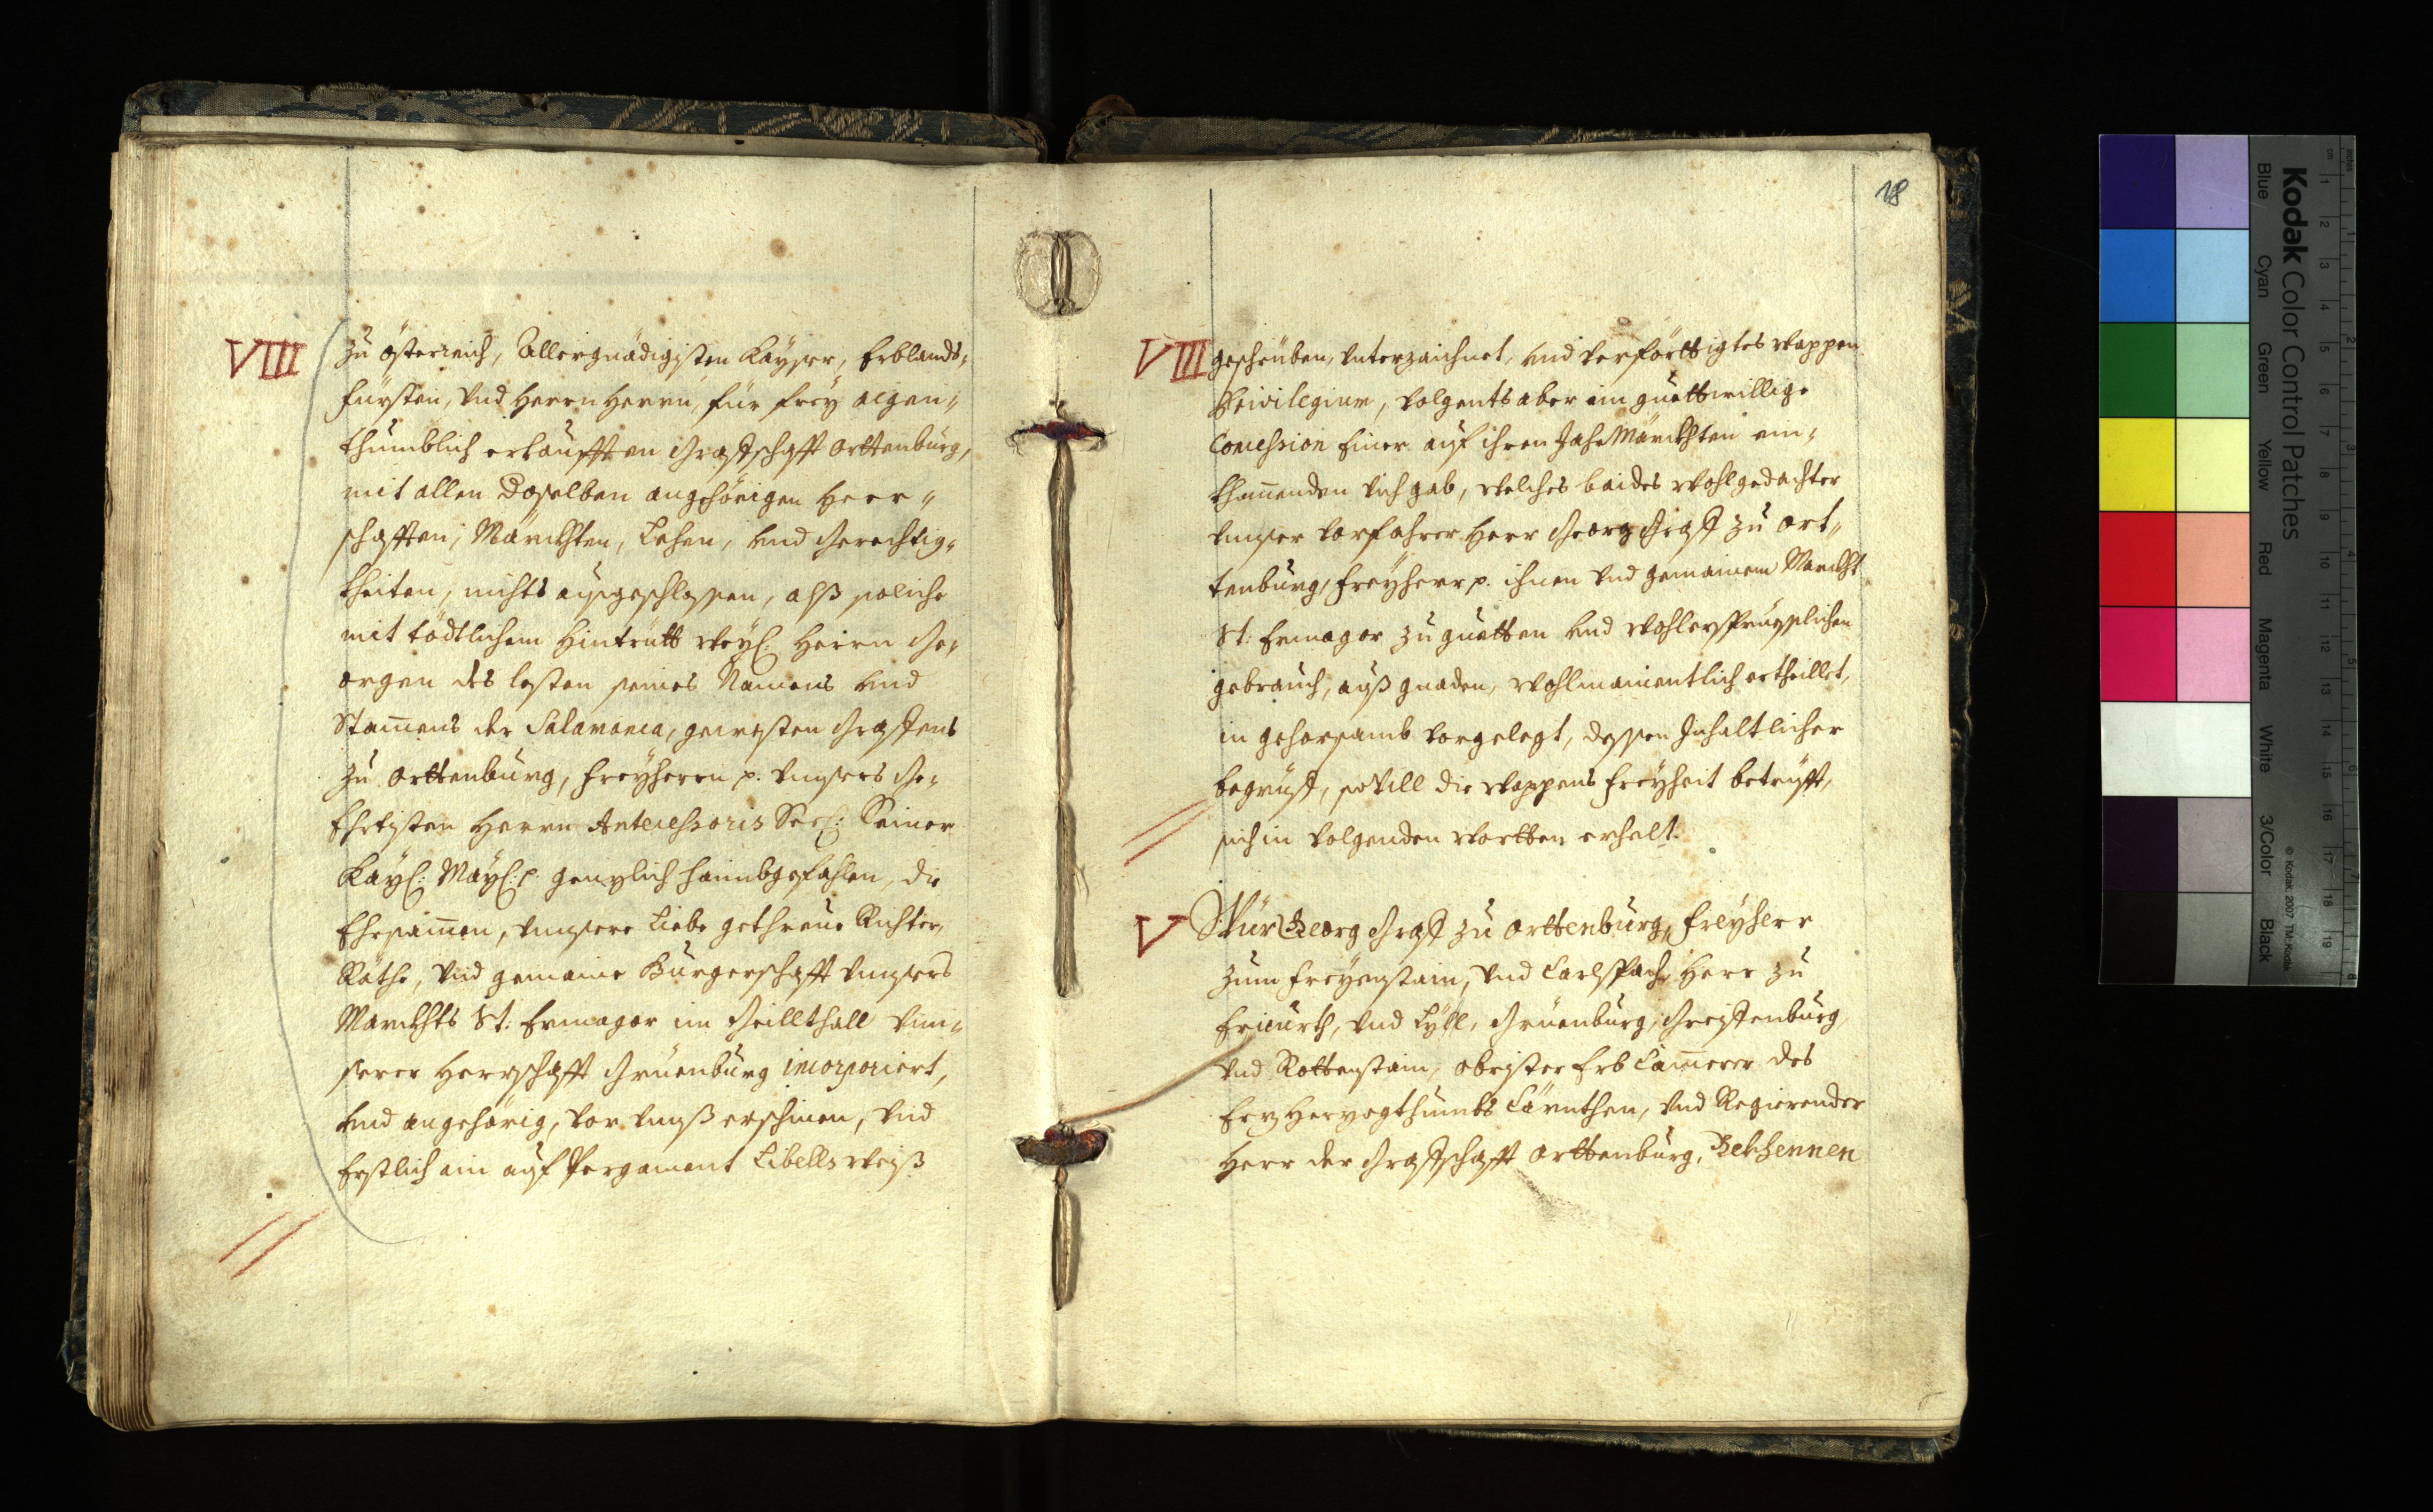 VIII
zu össterreich, Allergnädigisten Kayser, Erblands„
fürsten, und Herrn Herrn, für freÿ aigen„
thumblich erkaufften Graffschafft Orttenburg,
mit allen Derselben angehörigen Herr„
schafften, Märckhten, Lehen, und Gerechtig„
kheiten, nichts ausgeschlossen, alß soliche
mit tödtlichem Hintritt weÿl: Herrn Ge„
orgen des lesten seines Namens und
Stammens der Salamanca, gewesten Graffens
zu Orttenburg, Freÿherrn p. unsers Ge„
Ehrtisten Herrn Antecessoris Seel: Seiner
Kaÿl: Maÿl: p. genzlich haimbgefahlen, die
Ehrsammen, unsere Liebe gethreue Richter,
Räthe, und gemaine Burgerschafft unsers
Marckhts St: Ermagor im Geillthall un„
serer Herrschafft Grüenburg incorporiert,
und angehörig, vor unß erschinen, und
Erstlich ain auf Pergament Libellsweiß
18
VIII
geschriben, unterzaichnet, und verförttigtes wappen
Privilegium, volgents aber ain guettwillige
Concession Einer auf ihren JahrMärckhten ein„
khommenden vich gab, welches baides wohlgedachter
unser vorfahrer Herr Georg Graff zu Ort„
tenburg, Freÿherr p. ihnen und gemainem Marckht
St: Ermagor zu guetten und wohlersprüesslichen
gebrauch, auß gnaden, wohlmainentlich ertheillet,
in gehorsamb vorgelegt, dessen Inhaltlicher
begriff, so vill die wappens freÿheit betrifft,
sich in volgenden wortten erhalt.
V
Wür Georg Graff zu Orttenburg, Freÿherr
zum Freÿenstain, und Carlspach, Herr zu
Ericurth, und Lÿßl, Grüenburg, Greiffenburg,
und Rottenstain, obrister Erb Cammerer des
Erz Herzogthumbs Cärnthen, und Regierender
Herr der Graffschafft Orttenburg, Bekhennen